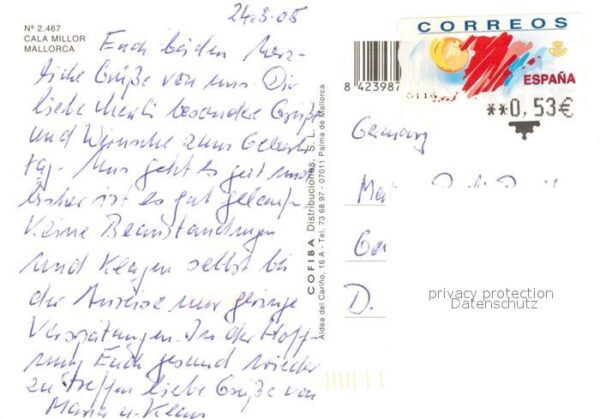 Nº 2.467
CALA MILLOR
MALLORCA
24.3.05
Euch beiden herz-
liche Grüße von uns. Dir
liebe besondere Grüße
und Wünsche zum Geburts
tag. Uns geht es gut und
bisher ist es gut gelaufen
Keine Beanstandungen
und Klagen selbst bei
der Anreise nur geringe
Verspätungen. In der Hoff-
nung Euch gesund wieder
zu treffen liebe Grüße von
Maria u. Klaus
COFIBA Distribuciones, S. L.
Aldea del Cariño, 16 A - Tel. 73 68 97 - 07011 Palma de Mallorca
8 423987
CORREOS
ESPAÑA
**0,53€
Germany
D.
privacy protection
Datenschutz